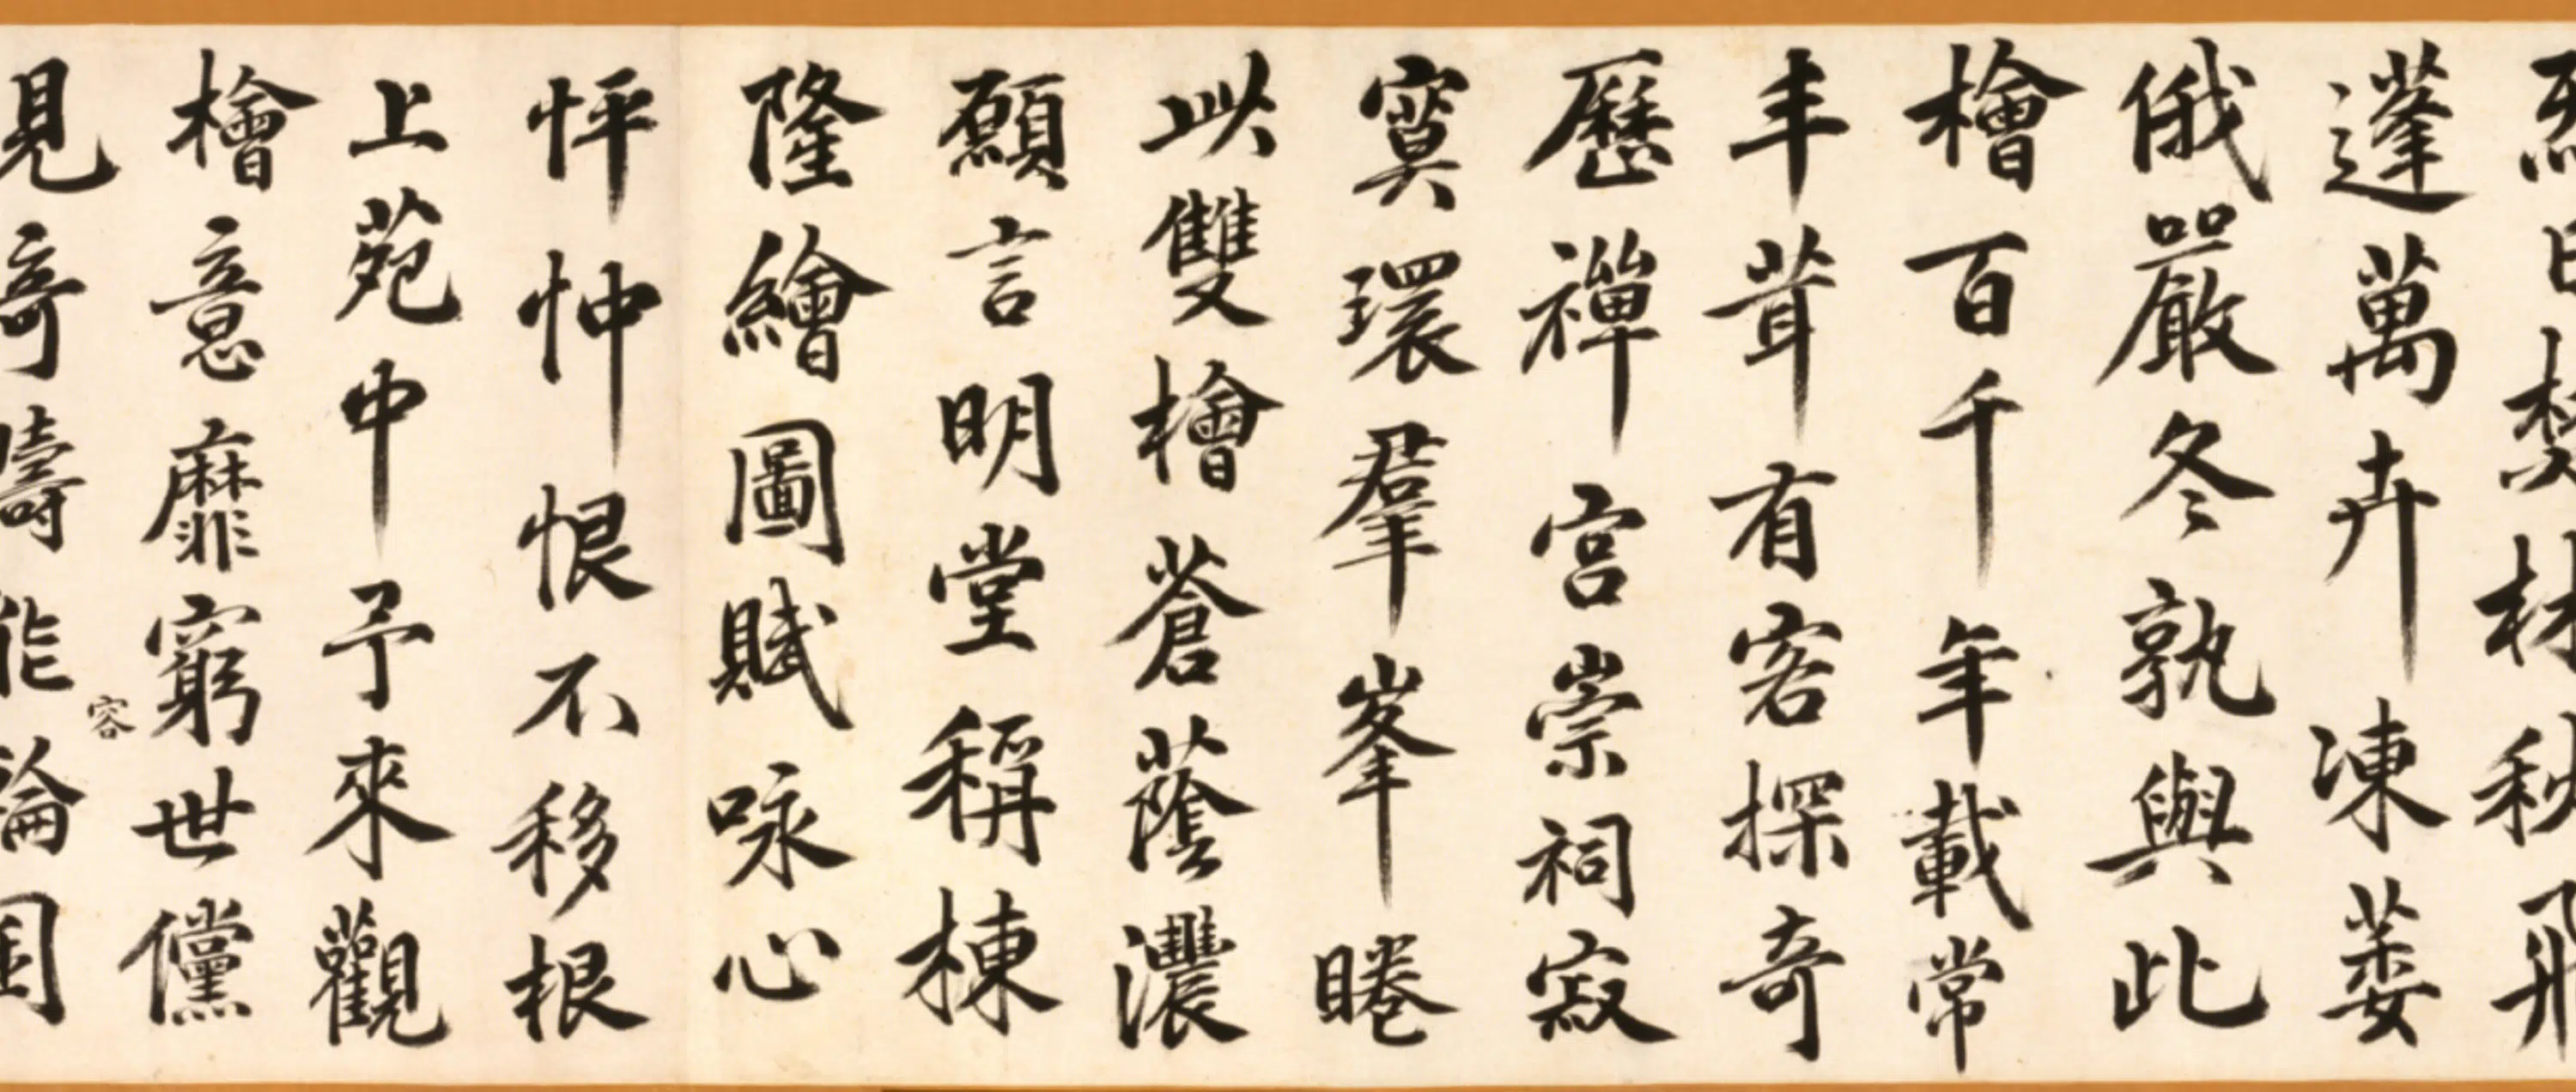 日焚林秋飛
蓬萬卉凍萎
俄嚴冬孰與此
檜百千年載常
丰茸有客探奇
歷禪宫崇祠寂
寞環羣峯睠
此雙檜蒼蔭濃
願言明堂稱棟
隆繪圖賦咏心
怦忡恨不移根
上苑中予來觀
檜意靡窮世儻
容
見奇疇能輪囷